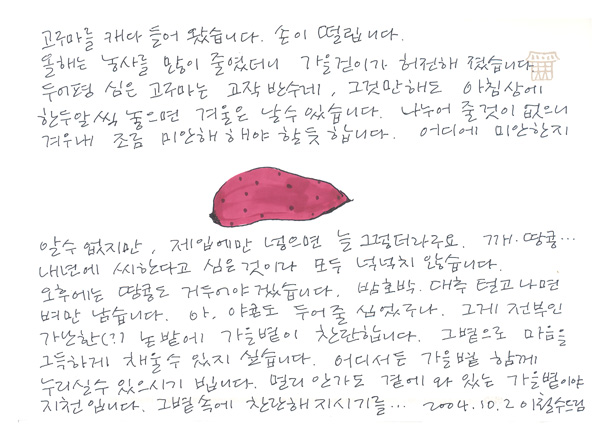 고구마를 캐다 들어 왔습니다. 손이 떨립니다.
올해는 농사를 많이 줄였더니 가을걷이가 허전해 졌습니다.
두어평 심은 고구마는 고작 반수레, 그것만해도 아침상에
한두알씩 놓으면 겨울은 날수 있습니다. 나누어 줄것이 없으니
겨우내 조금 미안해 해야 할듯 합니다. 어디에 미안한지
알수 없지만, 제입에만 넣으면 늘 그렇더라구요. 깨·땅콩…
내년에 씨한다고 심은것이라 모두 넉넉치 않습니다.
오후에는 땅콩도 거두어야겠습니다. 밤호박·대추 털고나면
벼만 남습니다. 아, 야콘도 두어줄 심었구나. 그게 전부인
가난한(?) 논밭에 가을볕이 찬란합니다. 그볕으로 마음을
그득하게 채울수 있지 싶습니다. 어디서든 가을볕 함께
누리실수 있으시기 빕니다. 멀리 안가도 곁에 와 있는 가을볕이야
지천입니다. 그볕속에 찬란해지시기를… 2004.10.2 이철수드림